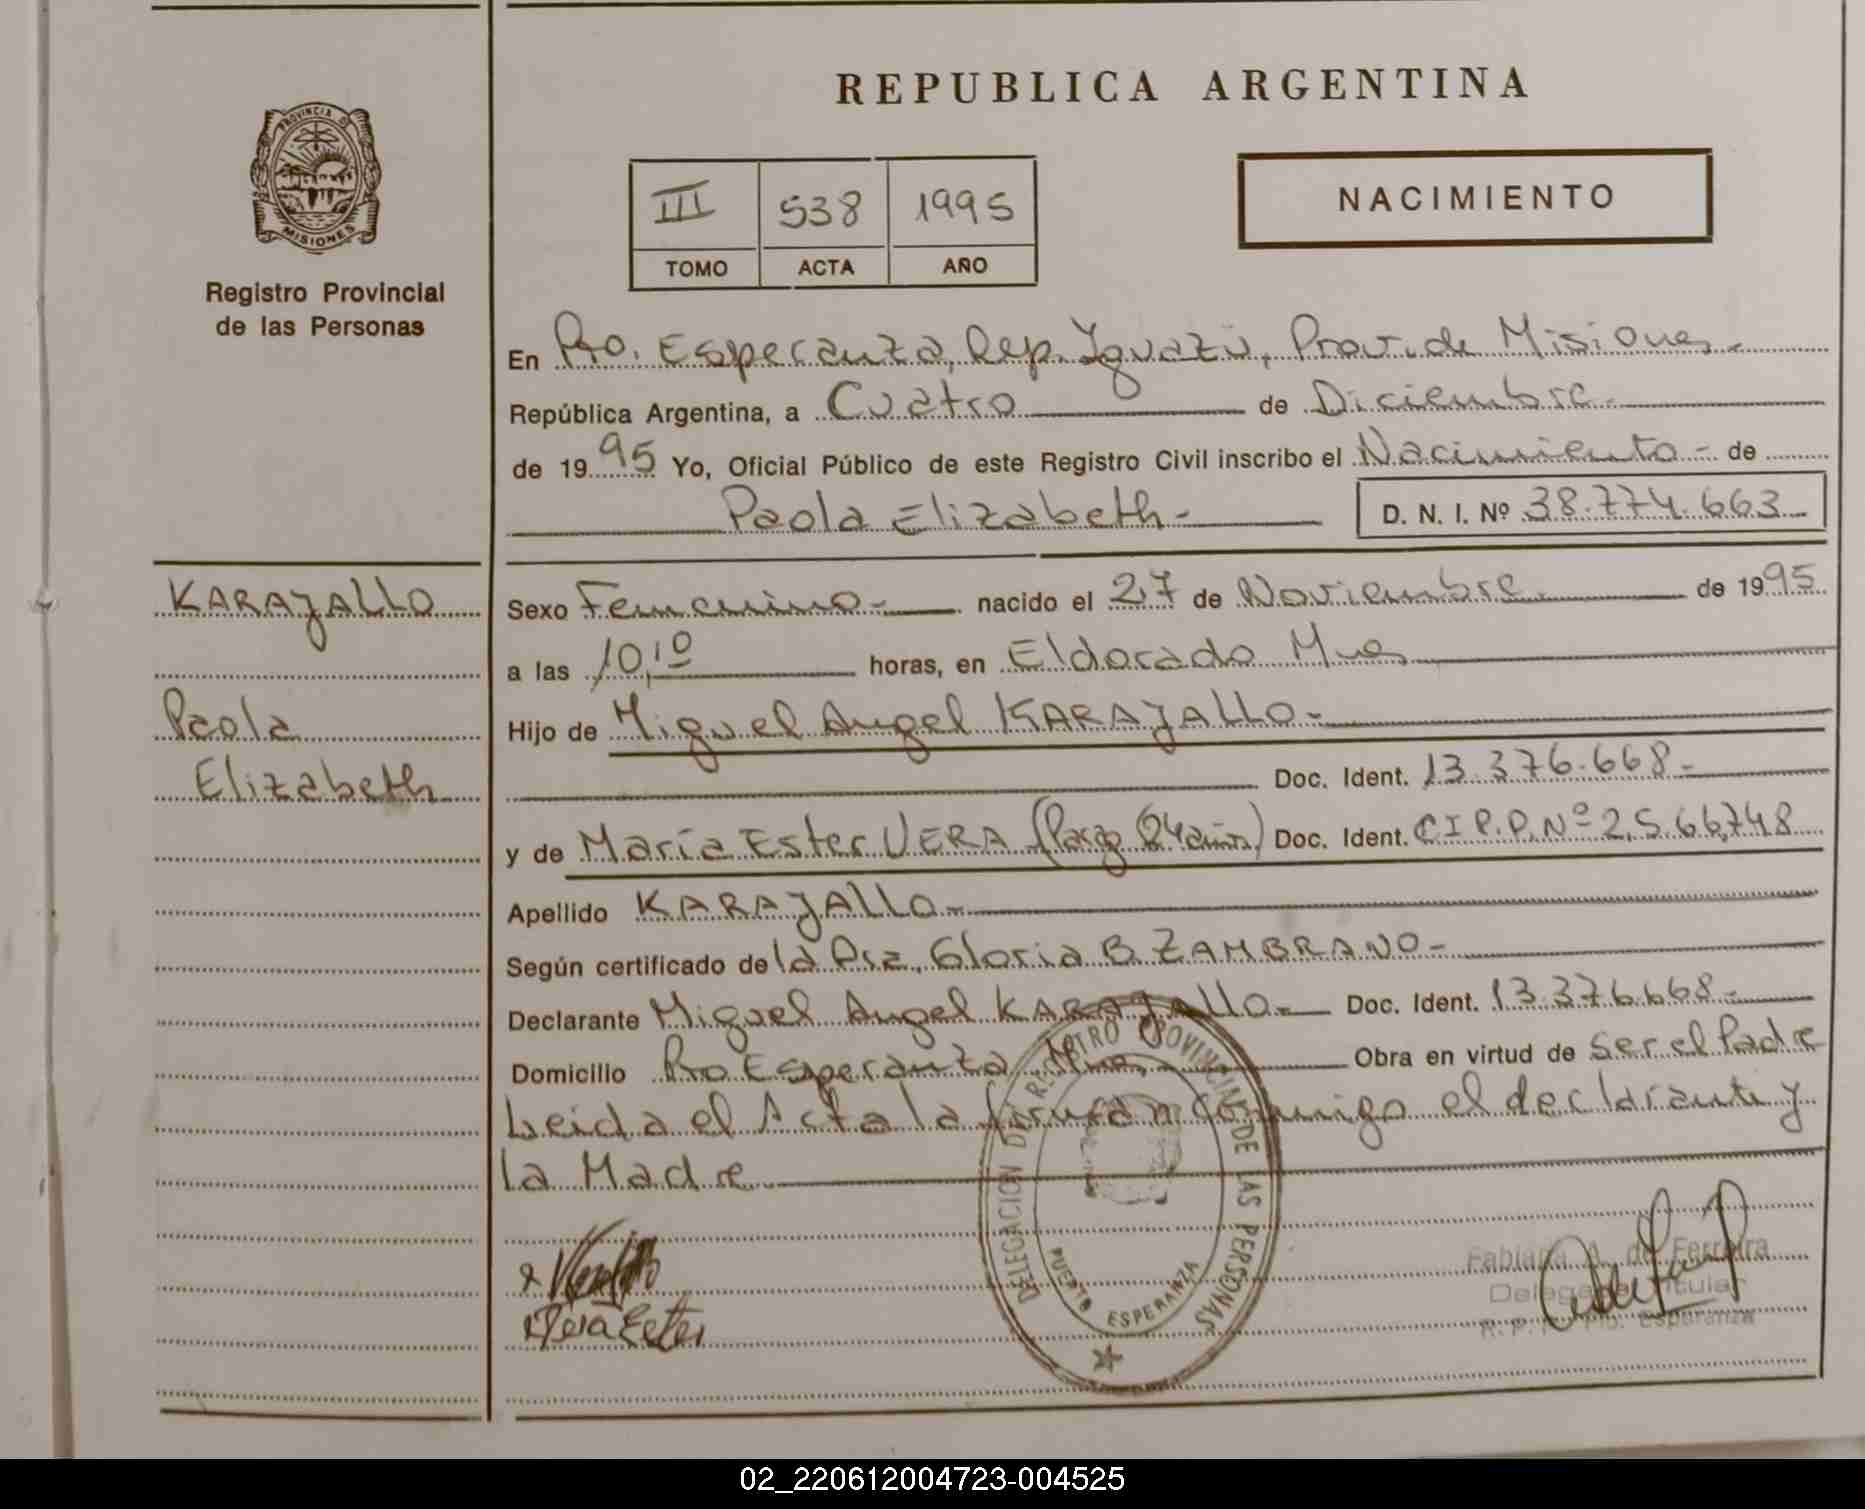 REPUBLICA ARGENTINA
PROVINCIA D
MISIONES
Registro Provincial
de las Personas
III 538 1995
TOMO ACTA AÑO
NACIMIENTO
En Pto. Esperanza, Dep. Yguazú, Prov. de Misiones.-
República Argentina, a Cuatro de Diciembre.-
de 1995 Yo, Oficial Público de este Registro Civil inscribo el Nacimiento - de
Paola Elizabeth - D. N. I. Nº 38.774.663
KARAJALLO
Paola
Elizabeth
Sexo Femenino - nacido el 27 de Noviembre de 1995
a las 10,10 horas, en Eldorado Mnes
Hijo de Miguel Angel KARAJALLO -
Doc. Ident. 13.376.668 -
y de María Ester VERA (24 años) Doc. Ident. C I P.P. Nº 2.566.748
Apellido KARAJALLO -
Según certificado de la Gloria B. ZAMBRANO -
Declarante Miguel Angel KARAJALLO - Doc. Ident. 13.376.668 -
Domicilio Pto Esperanza Mnes, Obra en virtud de ser el Padre
Leída el Acta la firman conmigo el declarante y
la Madre
Vera Ester
DELEGACION DEL REGISTRO PROVINCIAL DE LAS PERSONAS
PUERTO ESPERANZA
Fabiana A. de Ferreira
Delegada Titular
R. P. P. Pto. Esperanza
02_220612004723-004525